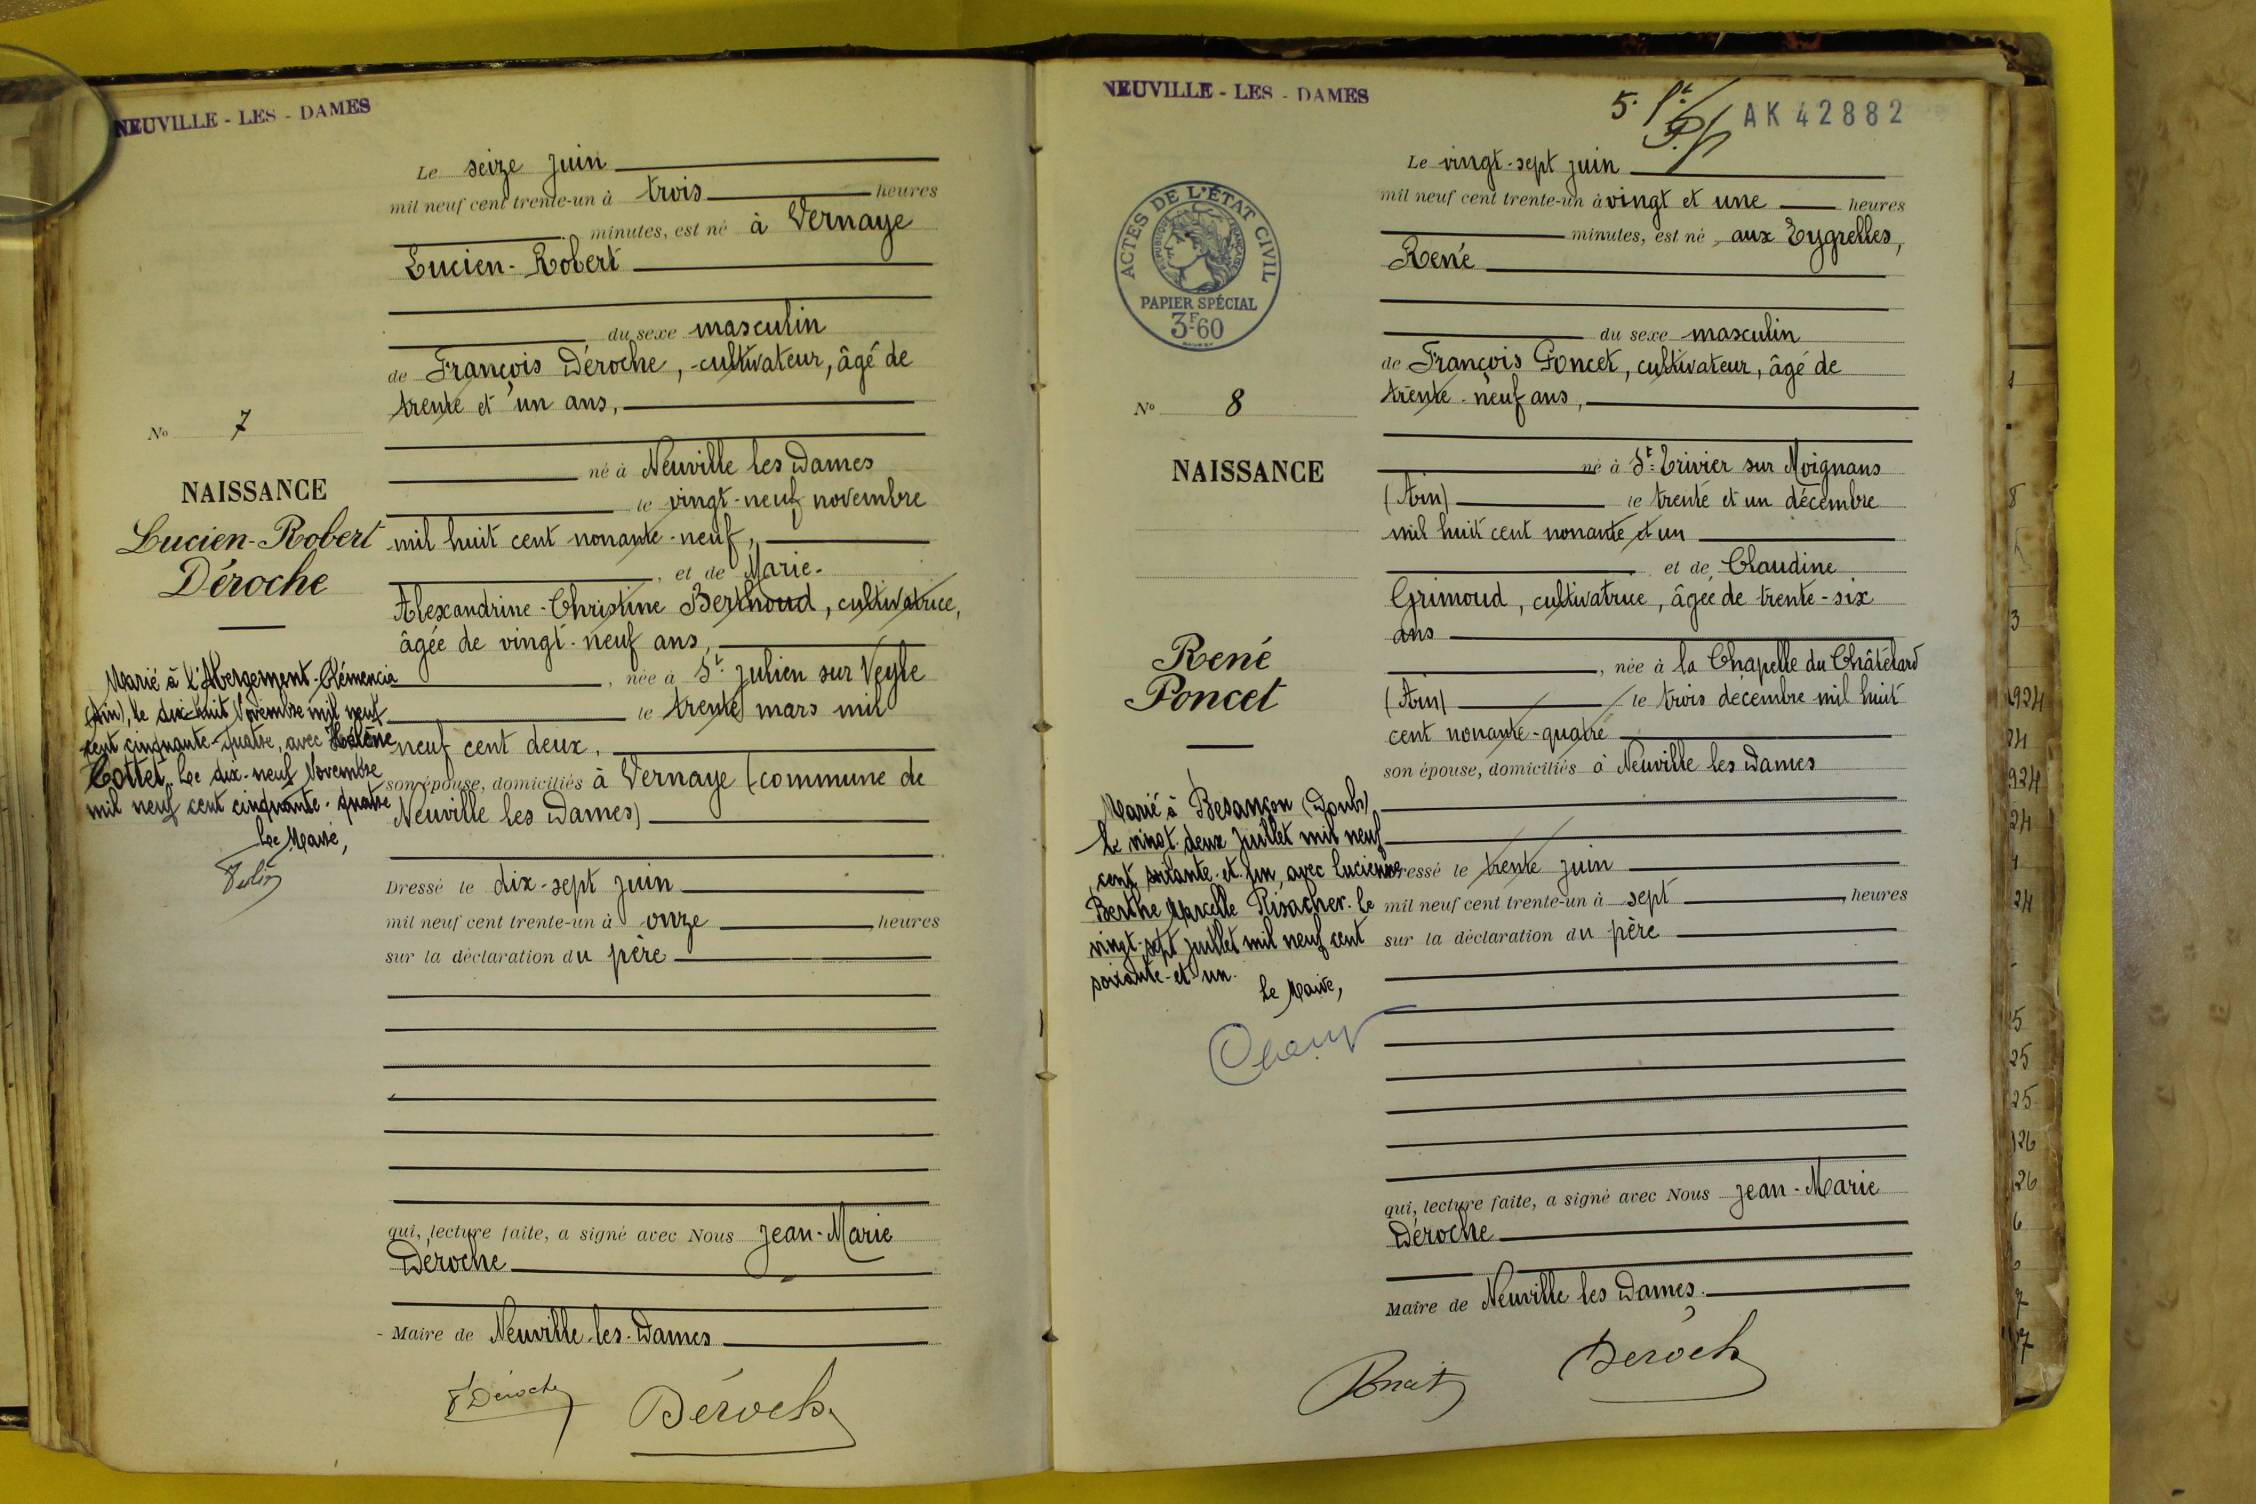 NEUVILLE - LES - DAMES
Le seize juin
mil neuf cent trente-un à trois heures
minutes, est né à Vernaye
Lucien-Robert
du sexe masculin
de François Déroche, cultivateur, âgé de
trente et un ans,
né à Neuville les Dames
le vingt-neuf novembre
mil huit cent nonante-neuf,
, et de Marie-
Alexandrine-Christine Berthoud, cultivatrice,
âgée de vingt-neuf ans,
, née à St. Julien sur Veyle
le trente mars mil
neuf cent deux,
son épouse, domiciliés à Vernaye (commune de
Neuville les Dames)
Dressé le dix-sept juin
mil neuf cent trente-un à onze heures
sur la déclaration du père
qui, lecture faite, a signé avec Nous Jean-Marie
Déroche
Maire de Neuville-les-Dames
F Déroche
Déroche
No 7
NAISSANCE
Lucien-Robert
Déroche
Marié à l'Abergement-Clémencia
(Ain), le dix-huit Novembre mil neuf
cent cinquante-quatre, avec Hélène
Cottet. Le dix-neuf Novembre
mil neuf cent cinquante-quatre
Le Maire,
NEUVILLE - LES - DAMES
5. ft.
AK 42882
ACTES DE L'ÉTAT CIVIL
RÉPUBLIQUE FRANÇAISE
PAPIER SPÉCIAL
3F60
Le vingt-sept juin
mil neuf cent trente-un à vingt et une heures
minutes, est né aux Eygrelles,
René
du sexe masculin
de François Poncet, cultivateur, âgé de
trente-neuf ans,
né à St. Trivier sur Moignans
(Ain) le trente et un décembre
mil huit cent nonante et un
et de Claudine
Grimoud, cultivatrice, âgée de trente-six
ans
, née à la Chapelle du Châtelard
(Ain) le trois décembre mil huit
cent nonante-quatre
son épouse, domiciliés à Neuville les Dames
Dressé le trente juin
mil neuf cent trente-un à sept heures
sur la déclaration du père
qui, lecture faite, a signé avec Nous Jean-Marie
Déroche
Maire de Neuville les Dames.
Poncet
Déroche
No 8
NAISSANCE
René
Poncet
Marié à Besançon (Doubs)
le vingt-deux juillet mil neuf
cent soixante-et-un, avec Lucienne
Berthe Marcelle Risacher. Le
vingt-sept juillet mil neuf cent
soixante-et-un.
Le Maire,